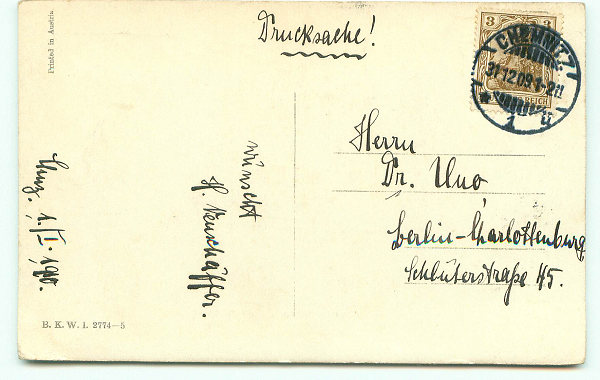 Printed in Austria
Drucksache!
3
CHEMNITZ
31.12.09.1-2N
REICH
1 ü
wünscht
H. Neuschäffer.
1./I. 1910.
Herrn
Dr. Uno
Berlin-Charlottenburg
Schlüterstraße 45.
B. K. W. I. 2774-5